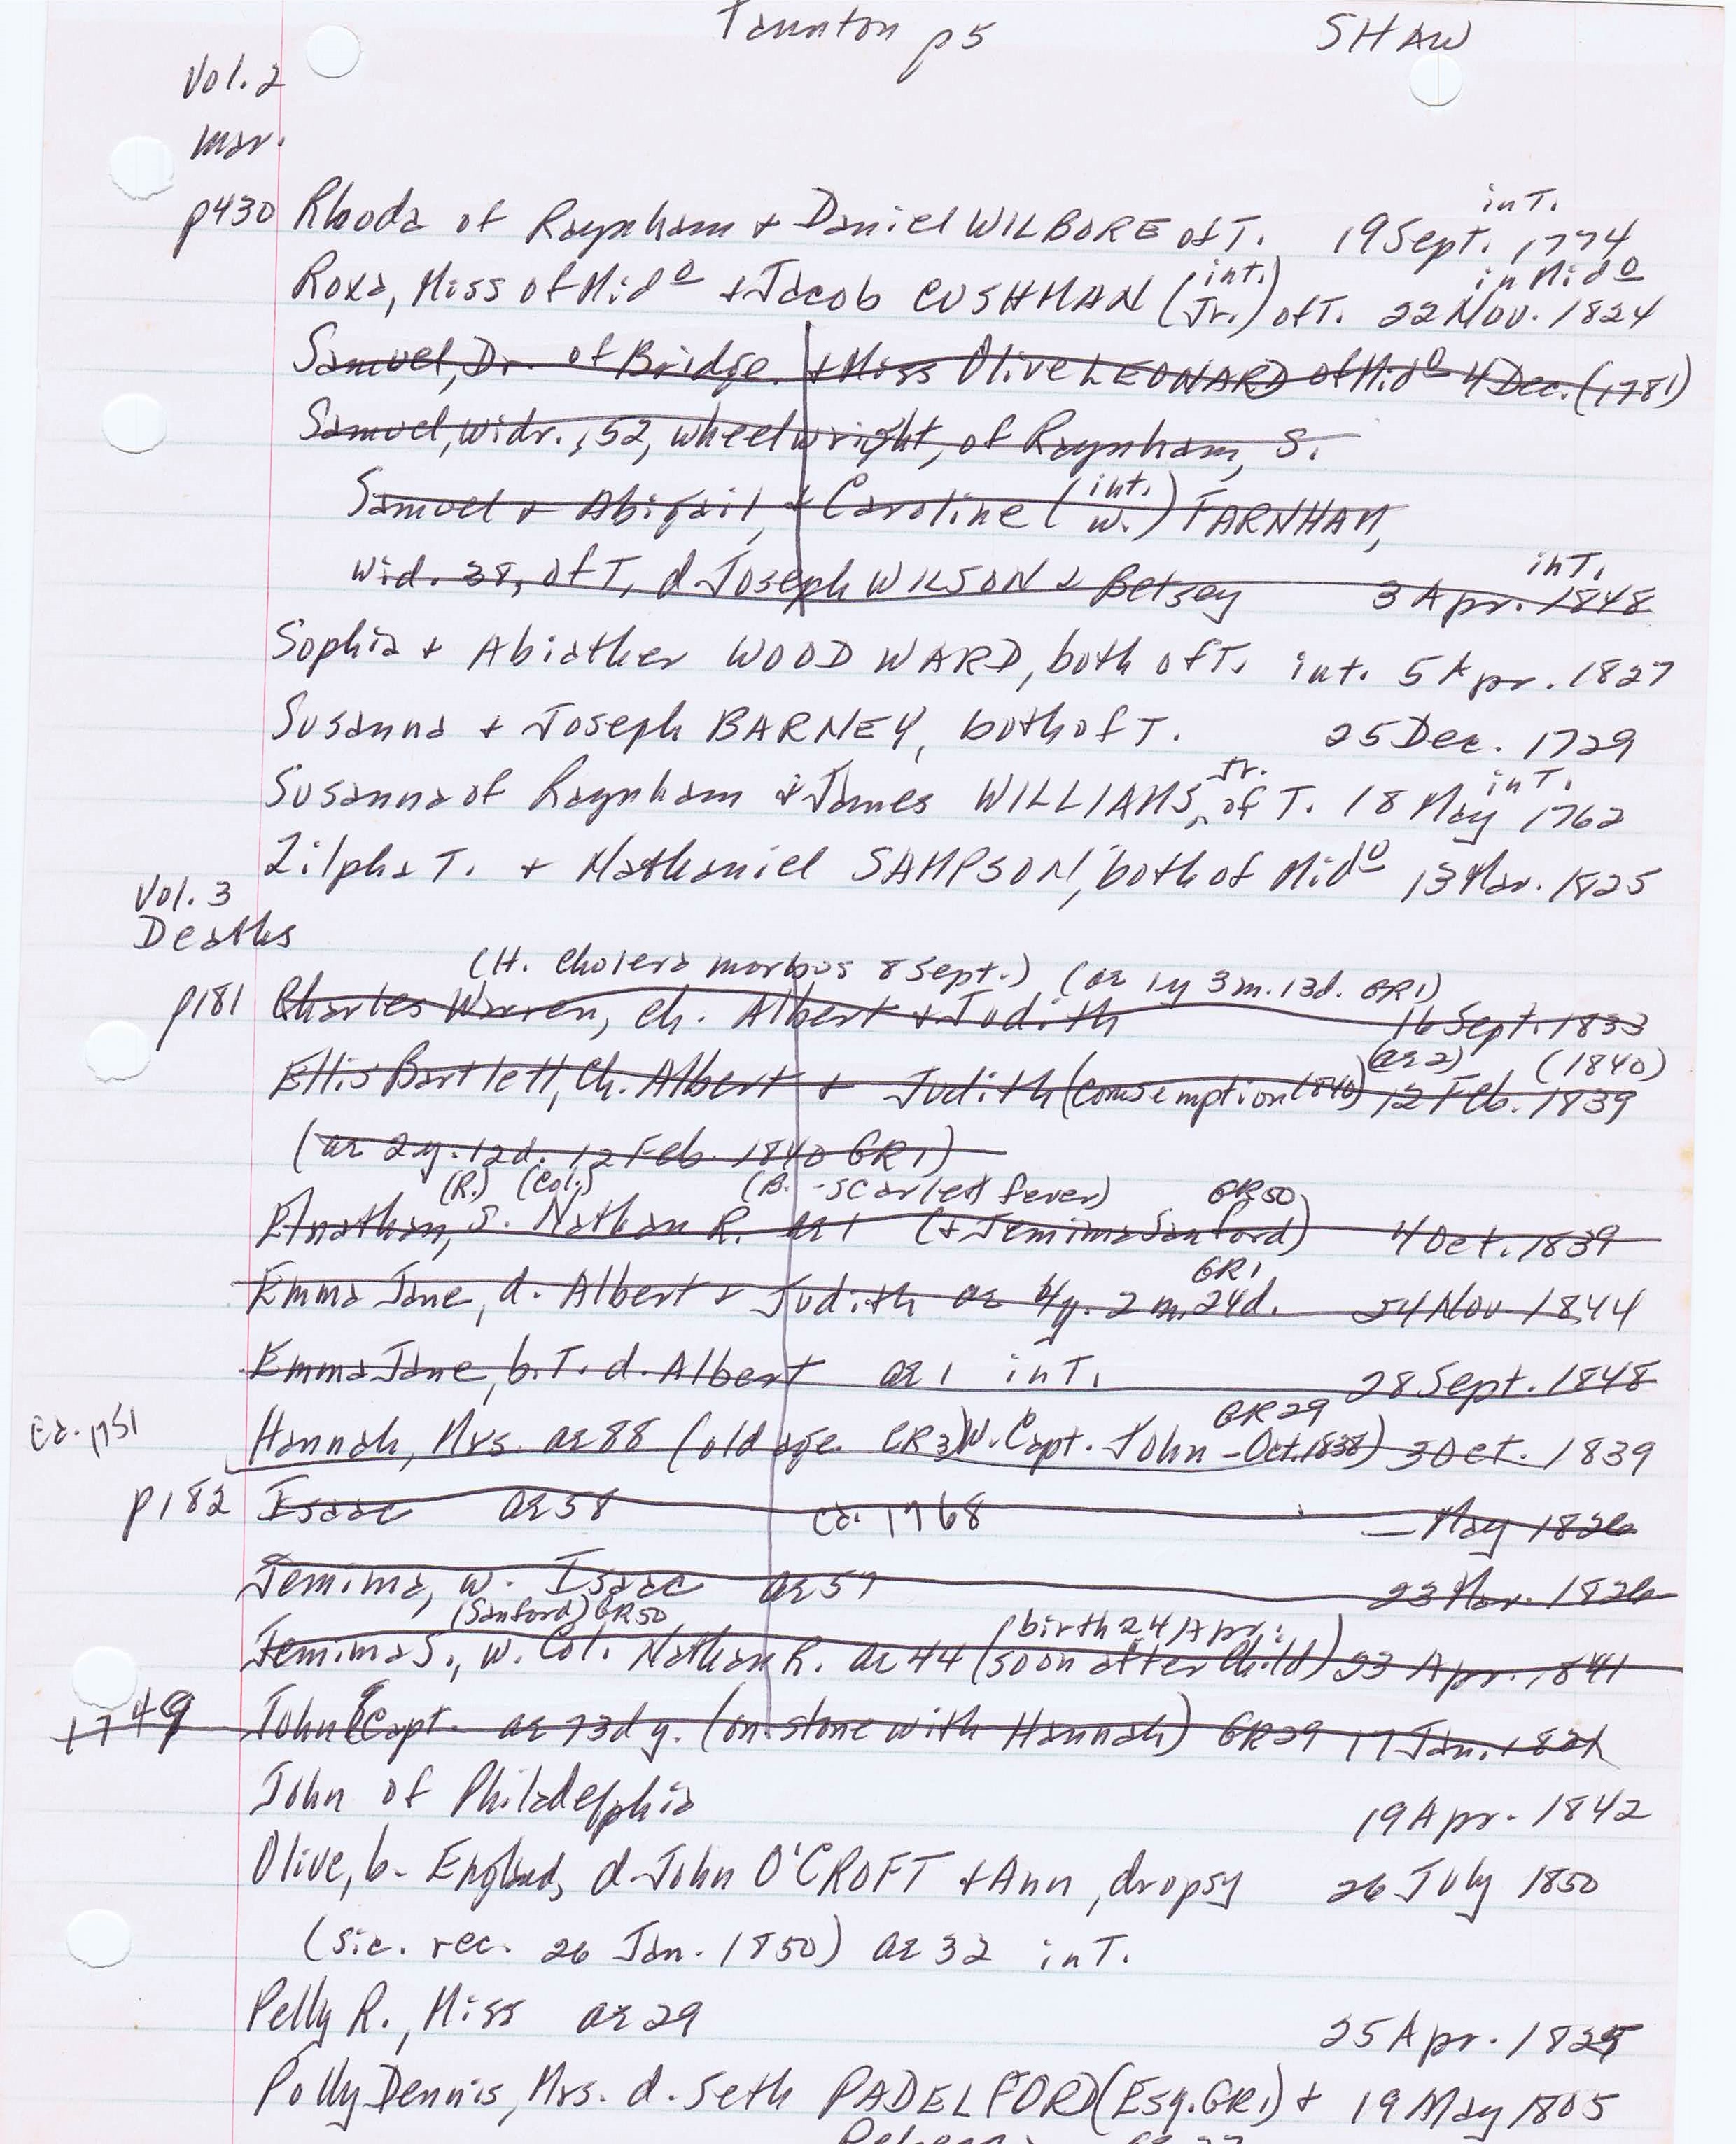 Taunton p5 SHAW
Vol. 2
Mar.
in T.
p430 Rhoda of Raynham + Daniel WILBORE of T. 19 Sept. 1774
(int.) in Mido
Roxa, Miss of Mido + Jacob CUSHMAN (Jr.) of T. 22 Nov. 1824
Samuel, Dr. of Bridge. + Miss Olive LEONARD of Mido 4 Dec. (1781)
Samuel, widr., 52, wheelwright, of Raynham, S.
(int.)
Samuel + Abigail, + Caroline (w.) FARNHAM,
in T.
wid. 38, of T, d Joseph WILSON + Betsey 3 Apr. 1848
Sophia + Abiather WOODWARD, both of T. int. 5 Apr. 1827
Susanna + Joseph BARNEY, both of T. 25 Dec. 1729
Jr. in T.
Susanna of Raynham + James WILLIAMS, of T. 18 May 1762
Zilpha T. + Nathaniel SAMPSON, both of Mido 13 Mar. 1825
Vol. 3
Deaths
(H. Cholera morbus 8 Sept.) (ae 1y 3m. 13d. GR1)
p181 Charles Warren, ch. Albert + Judith 16 Sept. 1833
(ae 2) (1840)
Ellis Bartlett, Ch. Albert + Judith (consemption 1840) 12 Feb. 1839
(ae 2y. 12d. 12 Feb. 1840 GR1)
(R.) (Col.) (B. - scarlet fever) GR50
Elnathan, S. Nathan R. ae 1 (+ Jemima Sanford) 4 Oct. 1839
GR1
Emma Jane, d. Albert + Judith ae 4y. 2m. 24d. 24 Nov. 1844
Emma Jane, b. T. d. Albert ae 1 in T. 28 Sept. 1848
GR29
ca. 1751 Hannah, Mrs. ae 88 (old age CR3) W. Capt. John - Oct. 1838) 3 Oct. 1839
p182 Isaac ae 58 ca. 1768 — May 1826
Jemima, w. Isaac ae 57 23 Mar. 1826
(Sanford) GR50 (birth 24 Apr.
Jemima S., w. Col. Nathan R. ae 44 (soon after Child) 23 Apr. 1841
1749 John Capt. ae 73d y. (on stone with Hannah) GR29 17 Jan. 1821
John of Philadelphia 19 Apr. 1842
Olive, b. England, d. John O'CROFT + Ann, dropsy 26 July 1850
(sic. rec. 26 Jan. 1850) ae 32 in T.
Pelly R., Miss ae 29 25 Apr. 1825
Polly Dennis, Mrs. d. Seth PADELFORD (Esq. GR1) + 19 May 1805